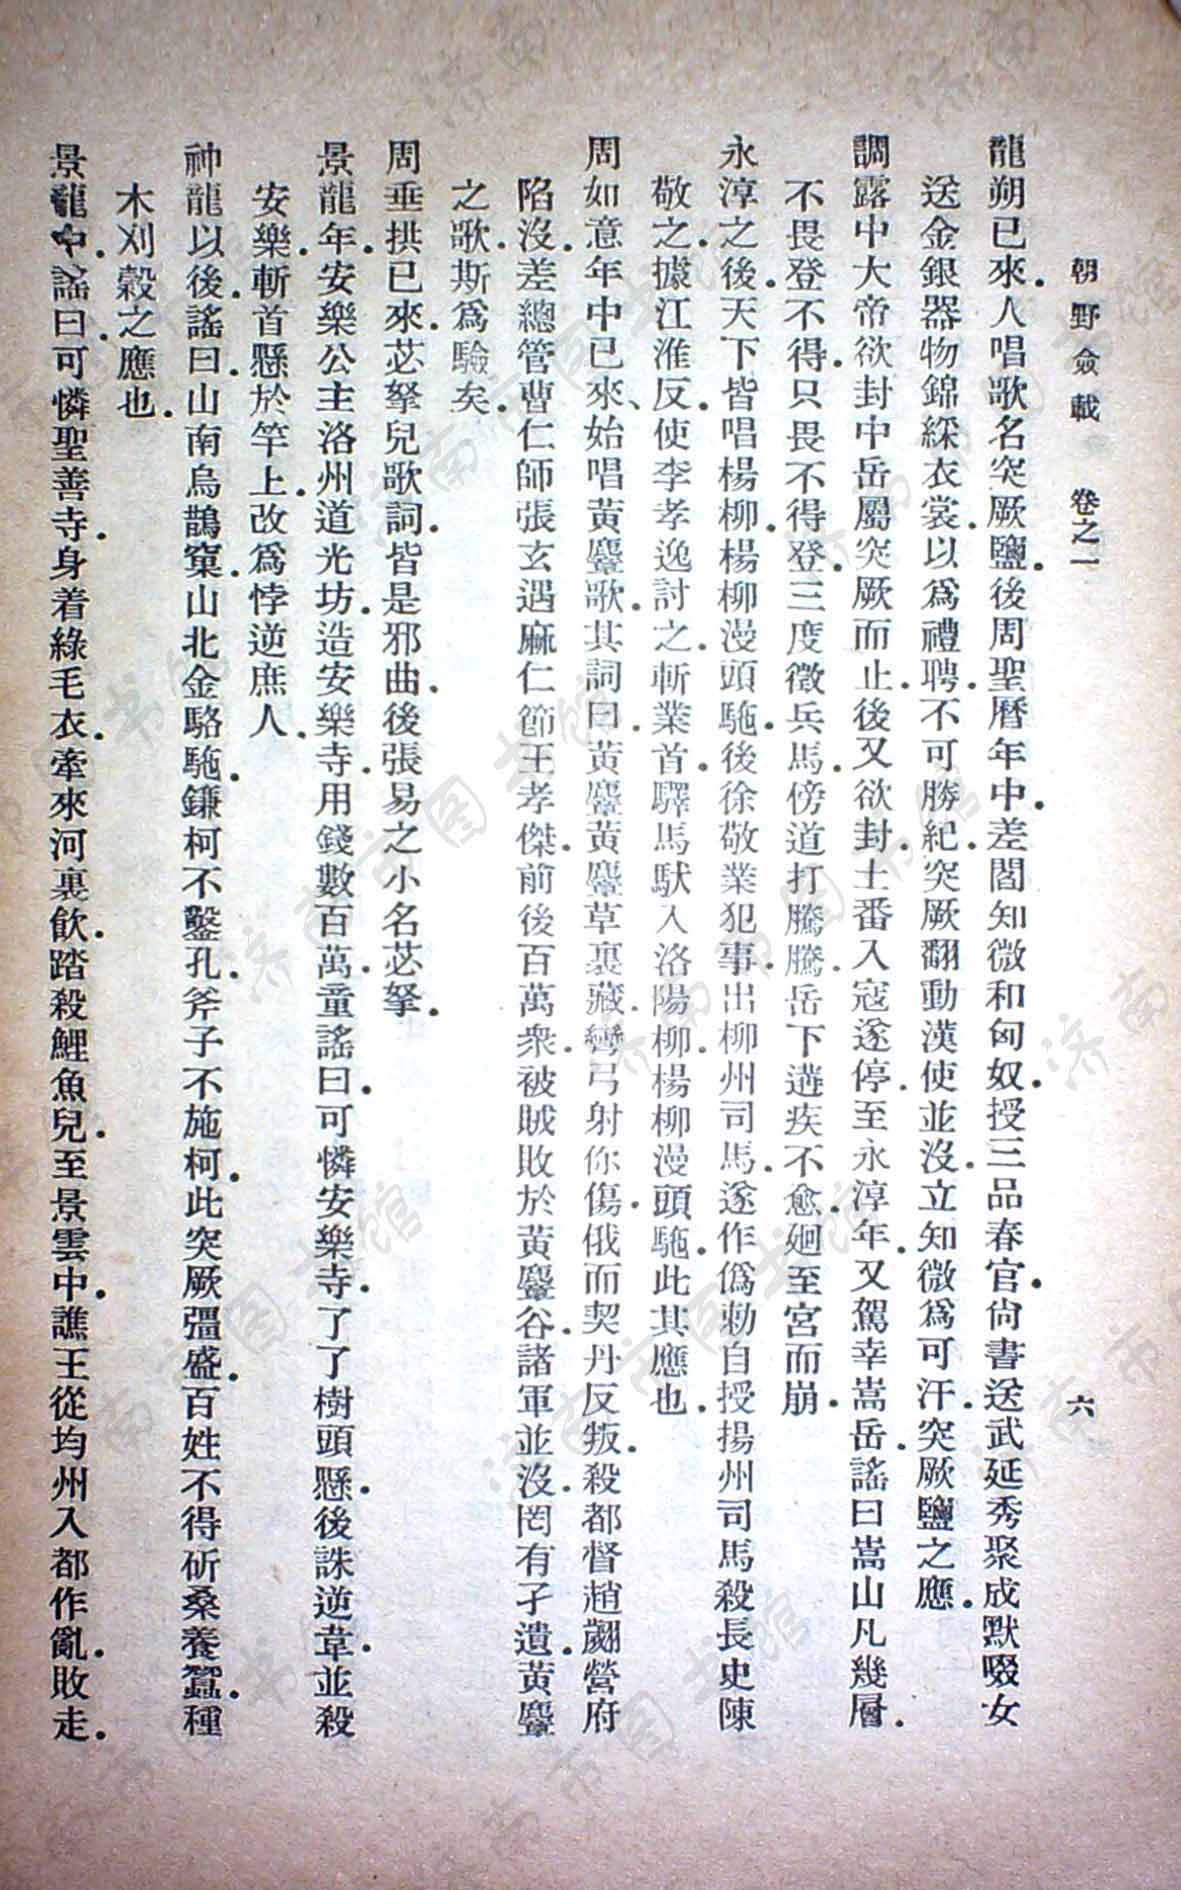 朝野僉載　卷之一　六
龍朔已來.人唱歌名突厥鹽.後周聖曆年中.差閻知微和匈奴.授三品春官尚書.送武延秀聚成默啜女
送金銀器物錦綵衣裳.以爲禮聘.不可勝紀.突厥翻動漢使並沒.立知微爲可汗.突厥鹽之應.
調露中大帝欲封中岳.屬突厥而止.後又欲封.土番入寇遂停.至永淳年.又駕幸嵩岳.謠曰嵩山凡幾層.
不畏登不得.只畏不得登.三度徵兵馬.傍道打騰騰.岳下遘疾不愈.廻至宮而崩.
永淳之後.天下皆唱楊柳.楊柳漫頭駞.後徐敬業犯事.出柳州司馬.遂作僞勅自授揚州司馬.殺長史陳
敬之.據江淮反.使李孝逸討之.斬業首.驛馬馱入洛陽.柳.楊柳漫頭駞.此其應也.
周如意年中已來、始唱黃麞歌.其詞曰.黃麞黃麞草裏藏.彎弓射你傷.俄而契丹反叛.殺都督趙翽.營府
陷沒.差總管曹仁師張玄遇麻仁節王孝傑.前後百萬衆.被賊敗於黃麞谷.諸軍並沒.罔有孑遺.黃麞
之歌.斯爲驗矣.
周垂拱已來.苾拏兒歌詞.皆是邪曲.後張易之小名苾拏.
景龍年.安樂公主洛州道光坊.造安樂寺.用錢數百萬.童謠曰.可憐安樂寺.了了樹頭懸.後誅逆韋.並殺
安樂.斬首懸於竿上.改爲悖逆庶人.
神龍以後.謠曰.山南烏鵲窠.山北金駱駞.鐮柯不鑿孔.斧子不施柯.此突厥彊盛.百姓不得斫桑養蠶.種
木刈穀之應也.
景龍中.謠曰.可憐聖善寺.身着綠毛衣.牽來河裏飲.踏殺鯉魚兒.至景雲中.譙王從均州入都作亂.敗走.